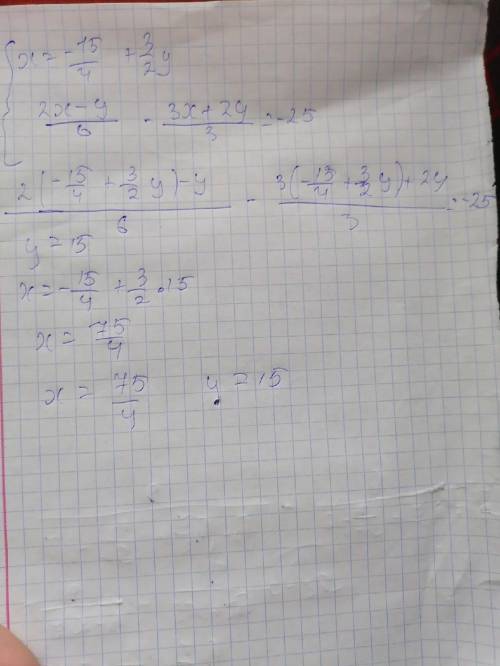 x = -15/4 + 3/2 y
2x-y/6 - 3x+2y/3 = -25
2(-15/4 + 3/2 y)-y/6 - 3(-15/4 + 3/2 y)+2y/3 = -25
y = 15
x = -15/4 + 3/2 · 15
x = 75/4
x = 75/4 y = 15